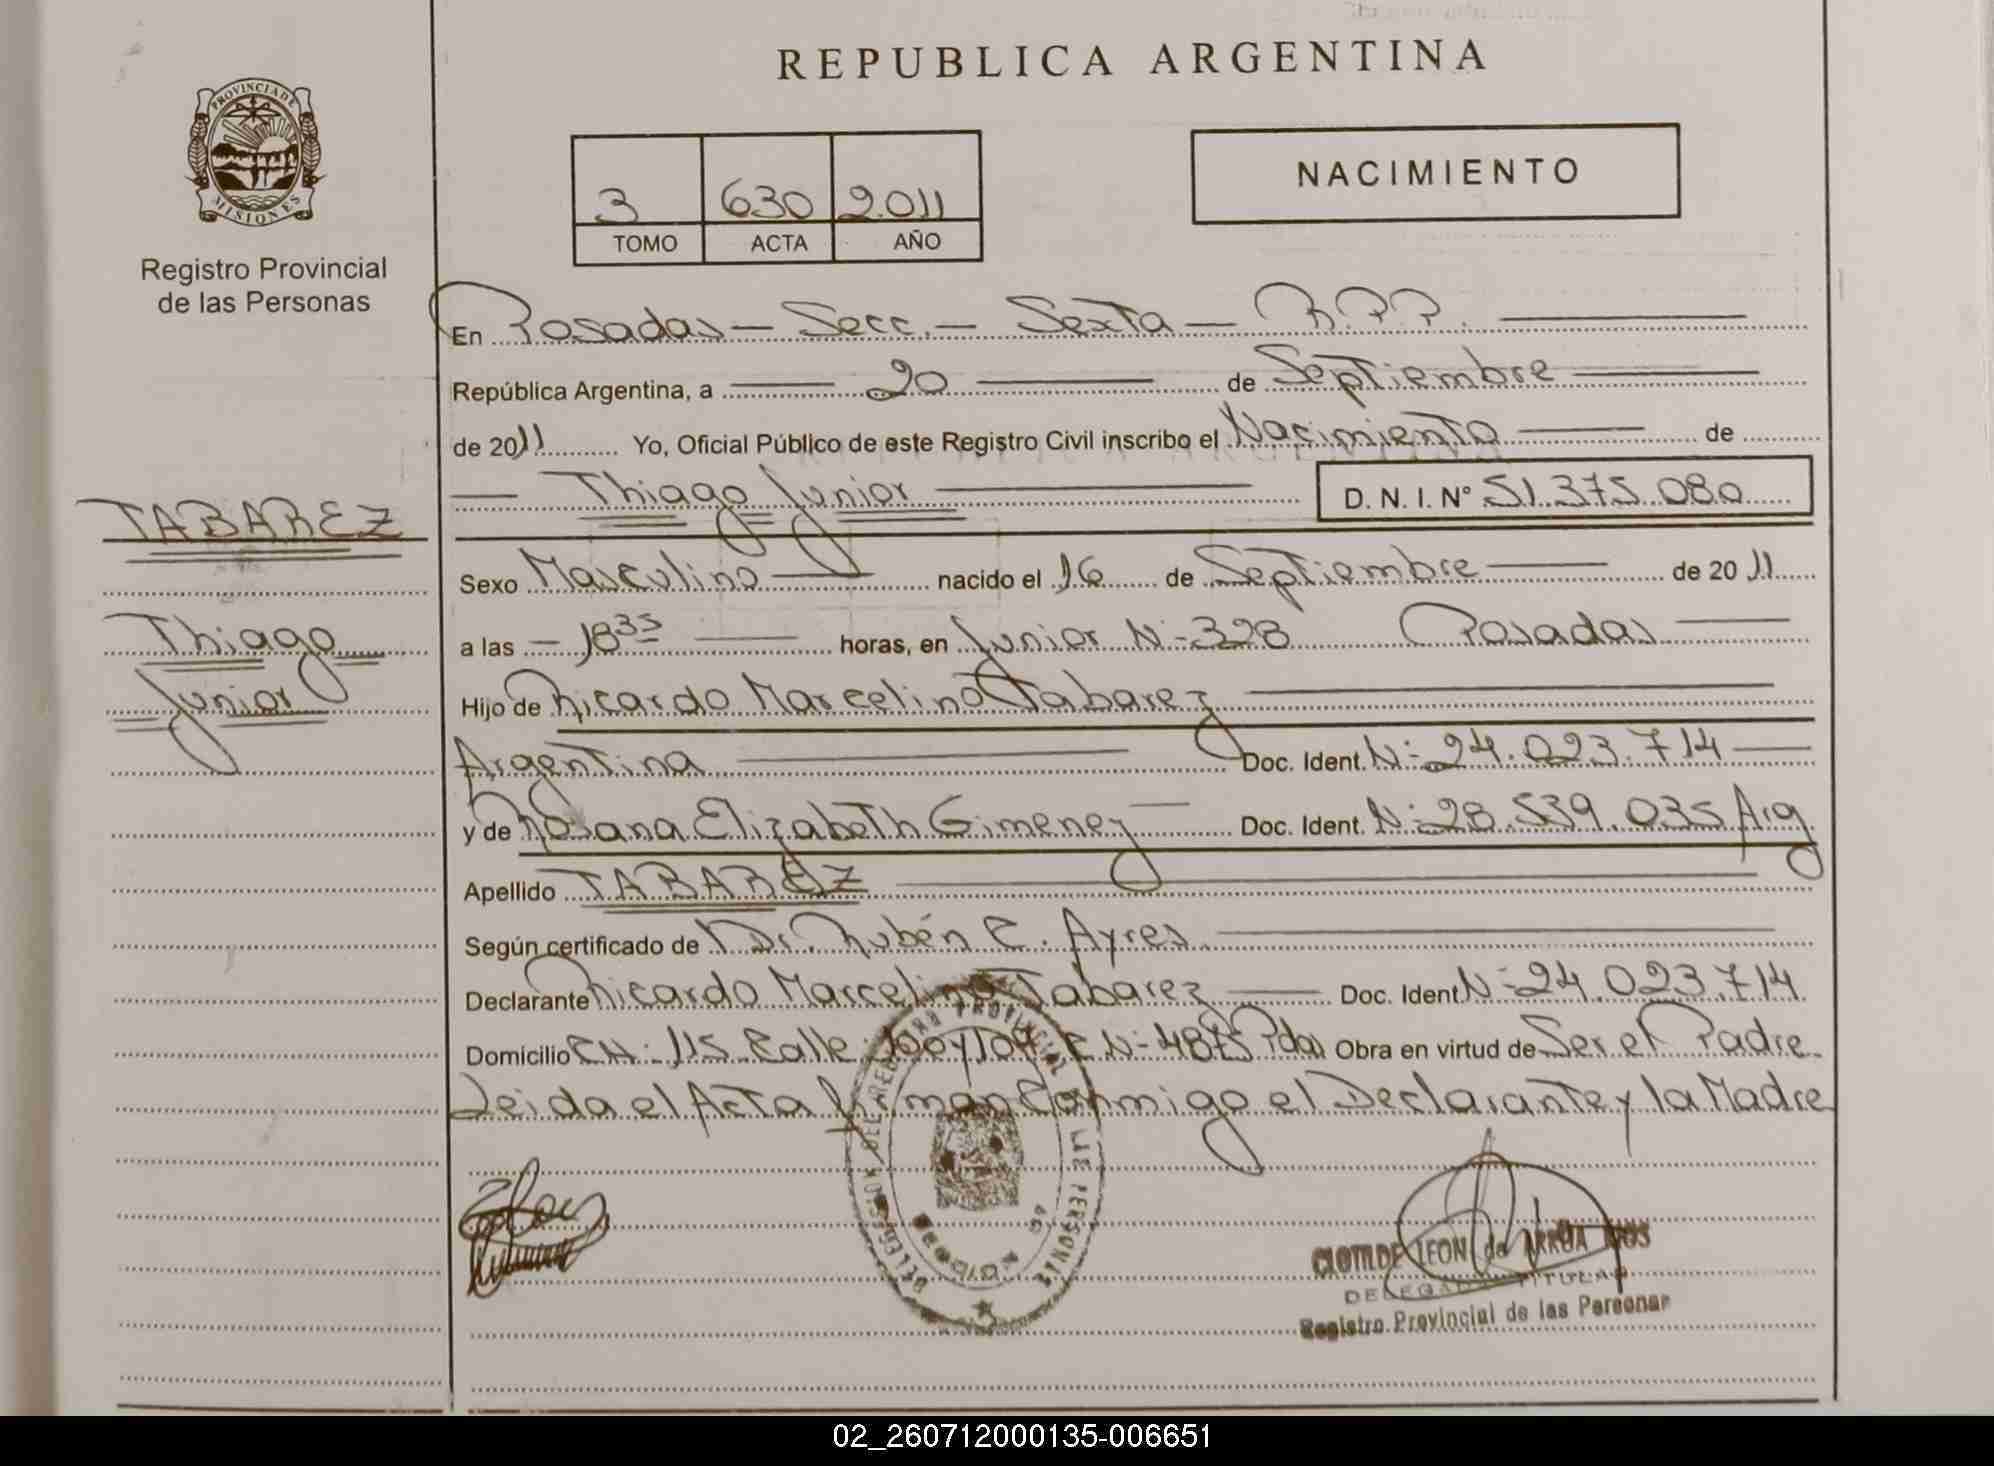 REPUBLICA ARGENTINA
PROVINCIA DE
MISIONES
Registro Provincial
de las Personas
3 630 2.011
TOMO ACTA AÑO
NACIMIENTO
En Posadas - Secc. - Sexta - R.P.P.
República Argentina, a 20 de Septiembre
de 2011 Yo, Oficial Público de este Registro Civil inscribo el Nacimiento de
Thiago Junior D. N. I. N° 51.375.080
TABAREZ
Thiago
Junior
Sexo Masculino nacido el 16 de Septiembre de 2011
a las 18 35 horas, en Junior N- 328 Posadas
Hijo de Ricardo Marcelino Tabarez
Argentina Doc. Ident. N- 24.023.714
y de Rosana Elizabeth Gimenez Doc. Ident. N- 28.539.035 Arg
Apellido TABAREZ
Según certificado de Dr. Rubén E. Ayres
Declarante Ricardo Marcelino Tabarez Doc. Ident N- 24.023.714
Domicilio CH: 115 Calle N- 4875 Pdas Obra en virtud de Ser el Padre
Leida el Acta firman Conmigo el Declarante y la Madre
CLOTILDE LEON de
DELEGADA TITULAR
Registro Provincial de las Personas
02_260712000135-006651